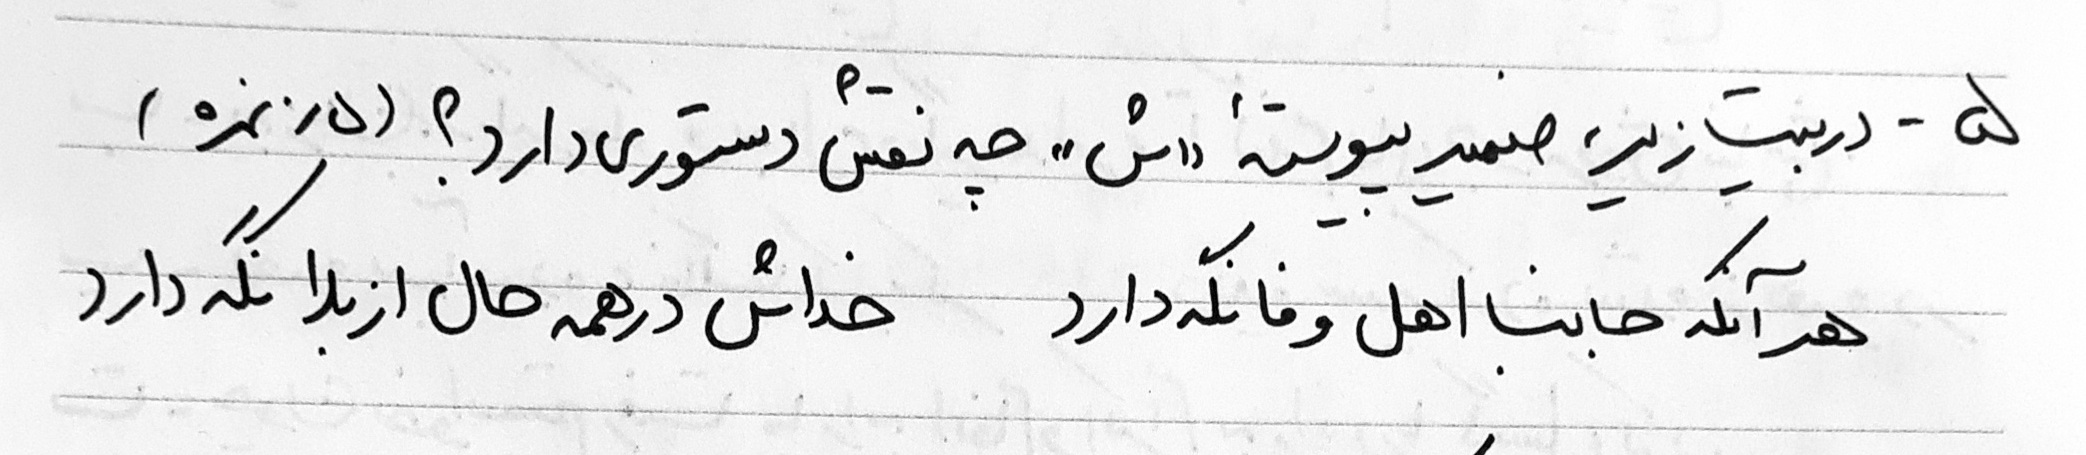 ۵- در بیت زیر، ضمیر پیوستهٔ «ش» چه نقش دستوری دارد؟ (۰/۵ نمره)
هر آنکه جانب اهل وفا نگه دارد خداش در همه حال از بلا نگه دارد